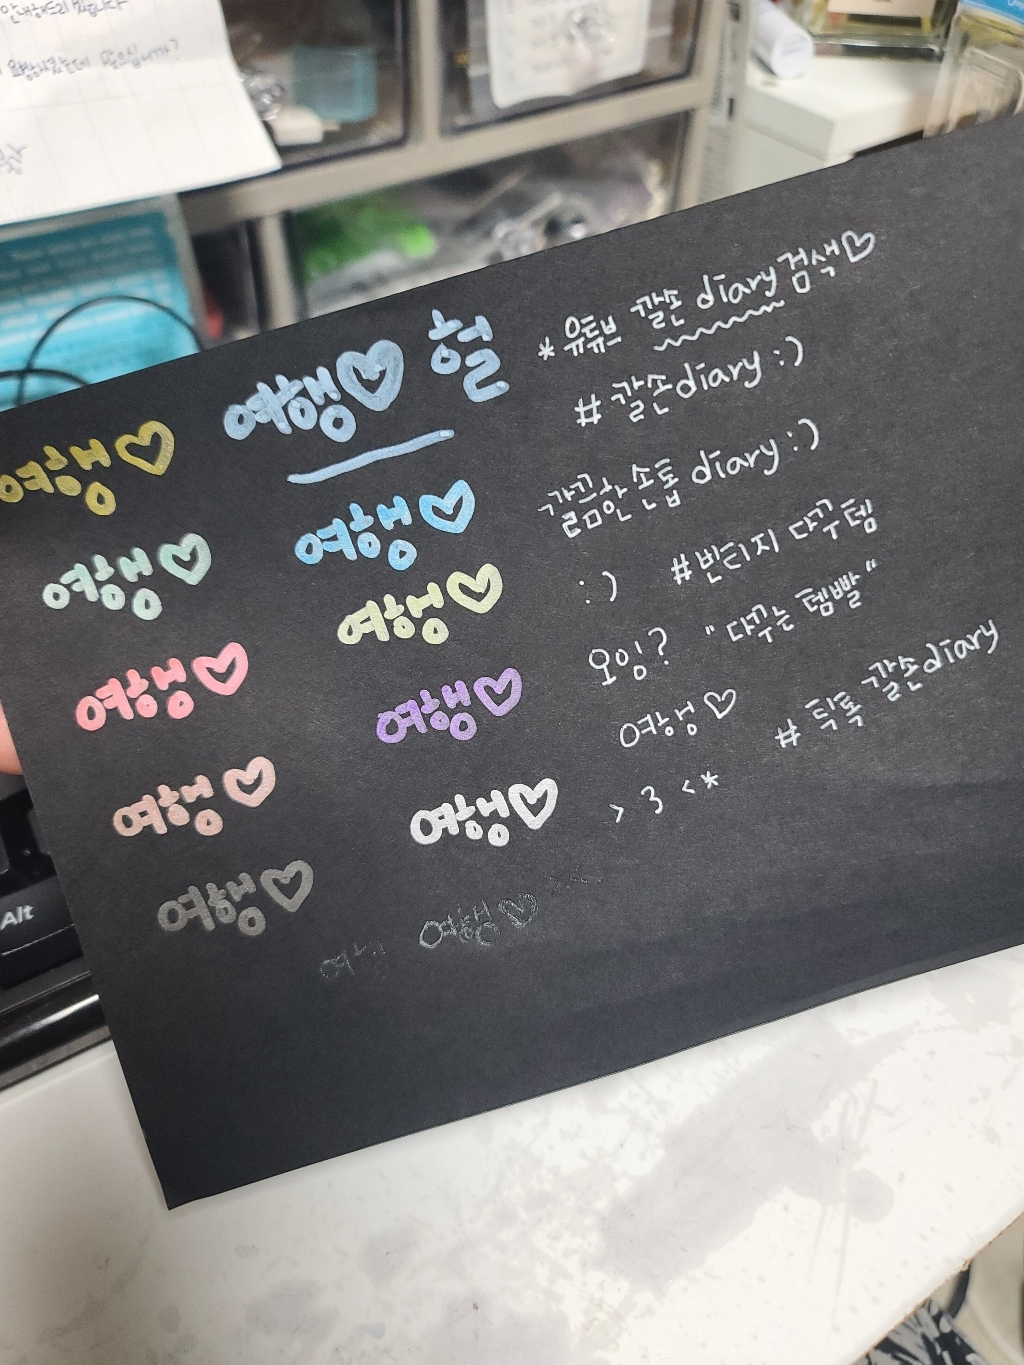 안내해드리겠습니다
여행♡
여행♡ 헐
여행♡
여행♡
여행♡
여행♡
여행♡
여행♡
여행♡
여행♡
여행♡
여행
여행♡
* 유튜브 깔손 diary 검색♡
# 깔손diary :)
깔끔한 손톱 diary :)
:) #빈티지 다꾸템
오잉? "다꾸는 템빨"
여행♡ # 틱톡 깔손diary
> 3 < *
Alt